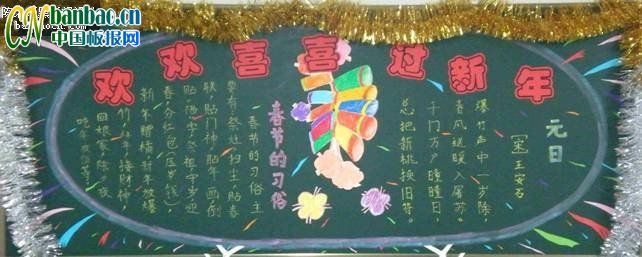 banbac.cn
中国板报网
欢欢喜喜过新年
元日
[宋]王安石
爆竹声中一岁除，
春风送暖入屠苏。
千门万户曈曈日，
总把新桃换旧符。
春节的习俗
春节的习俗主
要有祭灶扫尘，贴春
联贴门神，贴年画，倒
贴福字，守岁迎
春，分红包(压岁钱)，
新年赠橘，拜年放爆
竹，接财神，
回娘家，除夕夜